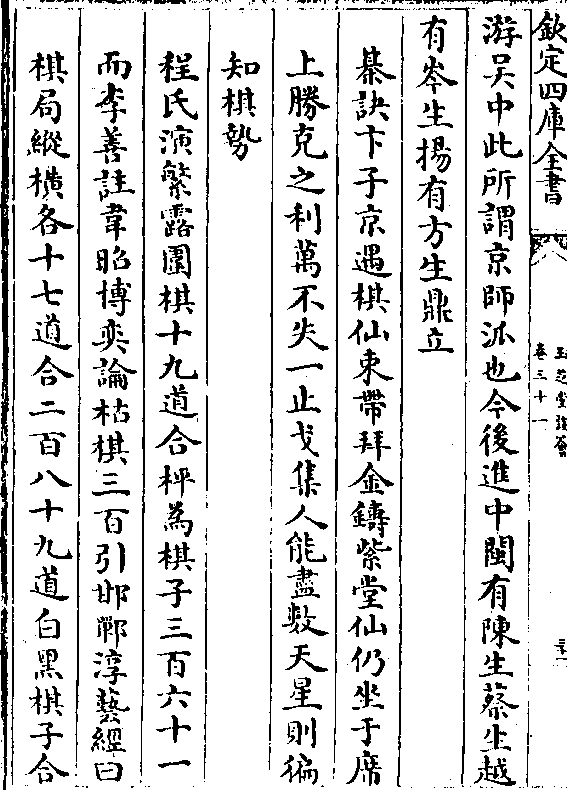 欽定四庫全書
玉芝堂談薈
卷三十一
三十一
游吴中此所謂京師派也今後進中閩有陳生蔡生越
有岑生揚有方生鼎立
棊訣卞子京遇棋仙束帶拜金鑄紫堂仙仍坐于席
上勝克之利萬不失一止戈集人能盡數天星則徧
知棋勢
程氏演繁露圍棋十九道合枰為棋子三百六十一
而李善註韋昭博奕論枯棋三百引邯鄲淳藝經曰
棋局縱橫各十七道合二百八十九道白黑棋子合